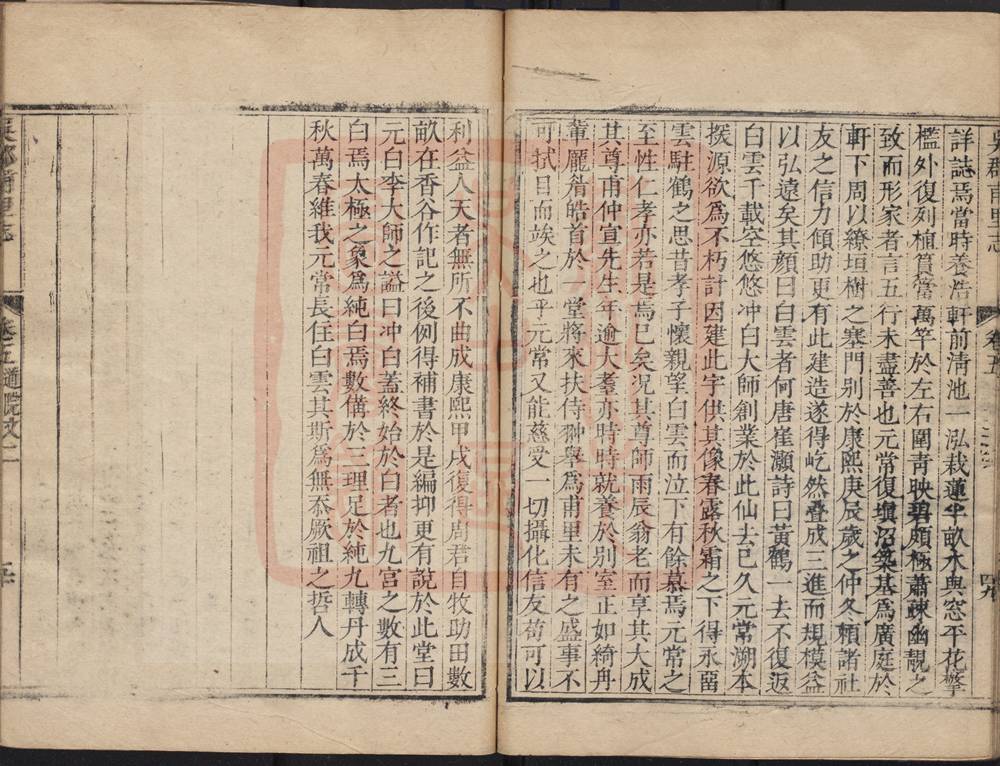 吳郡甫里志
卷五
詳誌焉當時養浩軒前清池一泓栽蓮半畝水與窓平花擎
檻外復列植篔簹萬竿於左右圍青映碧頗極蕭疎幽靚之
致而形家者言五行未盡善也元常復塡沼築基爲廣庭於
軒下周以繚垣樹之塞門别於康熙庚辰歲之仲冬頼諸社
友之信力傾助更有此建造遂得屹然叠成三進而規模益
以弘遠矣其顏曰白雲者何唐崔灝詩曰黃鶴一去不復返
白雲千載空悠悠冲白大師創業於此仙去已久元常溯本
探源欲爲不朽計因建此宇供其像春露秋霜之下得永畱
雲駐鶴之思昔孝子懷親望白雲而泣下有餘慕焉元常之
至性仁孝亦若是焉已矣况其尊師雨辰翁老而享其大成
其尊甫仲宣先生年逾大耋亦時時就養於別室正如綺冉
軰龎眉皓首於一堂將來扶侍翀舉爲甫里未有之盛事不
可拭目而竢之也乎元常又能慈受一切攝化信友苟可以
利益人天者無所不曲成康熙甲戌復得周君自牧助田數
畝在香谷作記之後例得補書於是編抑更有說於此堂曰
元白李大師之謚曰冲白蓋終始於白者也九宮之數有三
白焉太極之象爲純白焉數偹於三理足於純九轉丹成千
秋萬春維我元常長住白雲其斯爲無忝厥祖之哲人
吳郡甫里志
卷之五道院文二